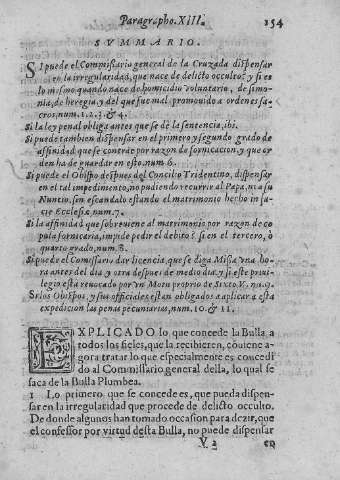 Paragrapho.XIII. 154
SVMMARIO.
SI puede el Commissario general de la Cruzada dispensar
en la irregularidad, que nace de delicto occulto? y si es
lo mismo quando nace de homicidio voluntario, de simo-
nia, de heregia y del que fue mal promouido a ordenes sa-
cros, num. 1. 2. 3. & 4.
Si la ley penal obliga antes que se dè la sentencia, ibi.
Si puede tambien dispensar en el primero y segundo grado de
affinidad, que se contrae por razon de fornicacion, y que or
den ha de guardar en esto, num. 6.
Si puede el Obispo despues del Concilio Tridentino, dispensar
en el tal impedimento, no pudiendo recurrir al Papa, ni a su
Nuntio, sin escandalo estando el matrimonio hecho in fa-
cie Ecclesiæ, num. 7.
Si la affinidad que sobreuiene al matrimonio por razon de co
pula fornicaria, impide pedir el debito? si en el tercero, ò
quarto grado, num. 8.
Si puede el Comissario dar licencia, que se diga Missa vna ho
ra antes del dia y otra despues de medio dia, y si este priui-
legio esta reuocado por vn Motu proprio de Sixto V. nu. 9.
Si los Obispos, y sus officiales estan obligados a aplicar a esta
expedicion las penas pecuniarias, num. 10. & 11.
EXPLICADO lo que concede la Bulla a
todos los fieles, que la recibieren, cõuiene a-
gora tratar lo que especialmente es concedi
do al Commissario general della, lo qual se
saca de la Bulla Plumbea.
1 Lo primero que se concede es, que pueda dispen-
sar en la irregularidad que procede de delicto occulto.
De donde algunos han tomado occasion para dezir, que
el confessor por virtud desta Bulla, no puede dispensar
V 2 en